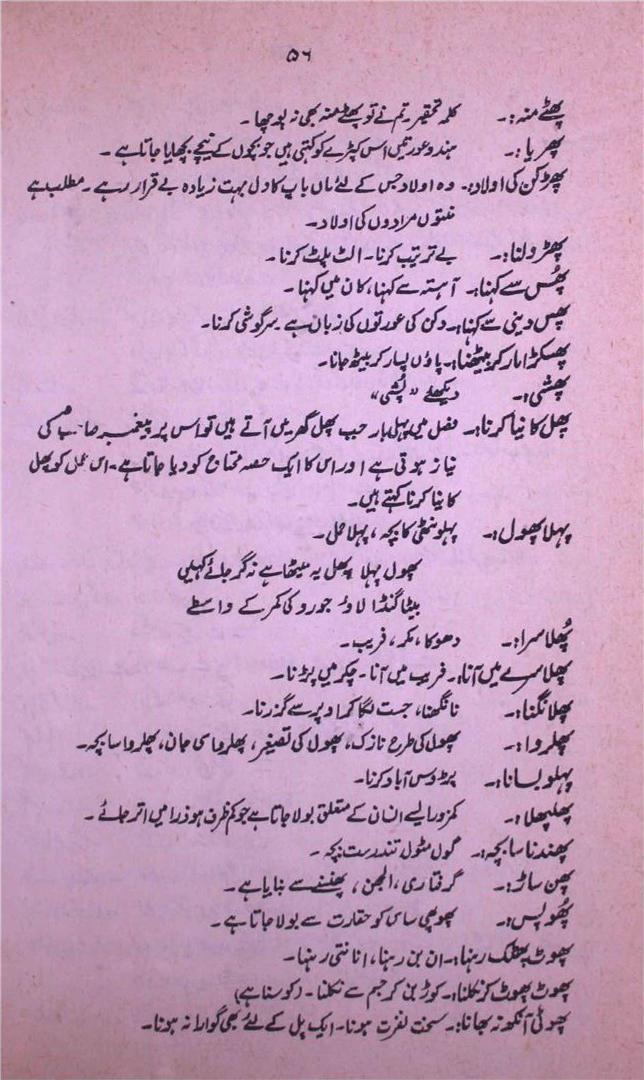 ۵۶
پھٹے منہ:۔ کلمہ تحقیر۔ تم نے تو پھٹے منہ بھی نہ پوچھا۔
پھریا:۔ ہندو عورتیں اس کپڑے کو کہتی ہیں جو بچوں کے نیچے بچھایا جاتا ہے۔
پھڑکن کی اولاد:۔ وہ اولاد جس کے لئے ماں باپ کا دل بہت زیادہ بے قرار رہے۔ مطلب ہے
منتوں مرادوں کی اولاد۔
پھڑولنا:۔ بے ترتیب کرنا۔ الٹ پلٹ کرنا۔
پھُس سے کہنا:۔ آہستہ سے کہنا، کان میں کہنا۔
پھس دینی سے کہنا:۔ دکن کی عورتوں کی زبان ہے۔ سرگوشی کرنا۔
پھسکڑا مار کر بیٹھنا:۔ پاؤں پسار کر بیٹھ جانا۔
پھشی:۔ دیکھئے
پھل کا نیا کرنا:۔ فصل میں پہلی بار جب پھل گھر میں آتے ہیں تو اس پر پیغمبر صاحبؐ کی
نیاز ہوتی ہے اور اس کا ایک حصہ محتاج کو دیا جاتا ہے۔ اس عمل کو پھل
کا نیا کرنا کہتے ہیں۔
پہلا پھول:۔ پہلونٹی کا بچہ، پہلا حمل۔
پھول پہلا پھل یہ میٹھا ہے نہ گر جائے کہیں
بیٹا گنڈا لاؤ جورو کی کمر کے واسطے
پُھلاسرا:۔ دھوکا، مکر، فریب۔
پھلاسرے میں آنا:۔ فریب میں آنا۔ چکر میں پڑنا۔
پھلانگنا:۔ نانگھنا، جست لگا کر اوپر سے گزرنا۔
پھلروا:۔ پھول کی طرح نازک، پھول کی تصغیر، پھلروا سی جان، پھلروا سا بچہ۔
پہلو بسانا:۔ پڑوس آباد کرنا۔
پھلپھلا:۔ کمزور ایسے انسان کے متعلق بولا جاتا ہے جو کم ظرف ہو ذرا میں اتر جائے۔
پھندنا سا بچہ:۔ گول مٹول تندرست بچہ۔
پھن ساڑ:۔ گرفتاری، الجھن، پھنسنے سے بنایا ہے۔
پُھولپس:۔ پھوپھی ساس کو حقارت سے بولا جاتا ہے۔
پھوٹ پھٹک رہنا:۔ ان بن رہنا، انانتی رہنا۔
پھوٹ پھوٹ کر نکلنا:۔ کوڑ بن کر جسم سے نکلنا۔ (کوسنا ہے)
پھوٹی آنکھ نہ بھانا:۔ سخت نفرت ہونا۔ ایک پل کے لئے بھی گوارا نہ ہونا۔